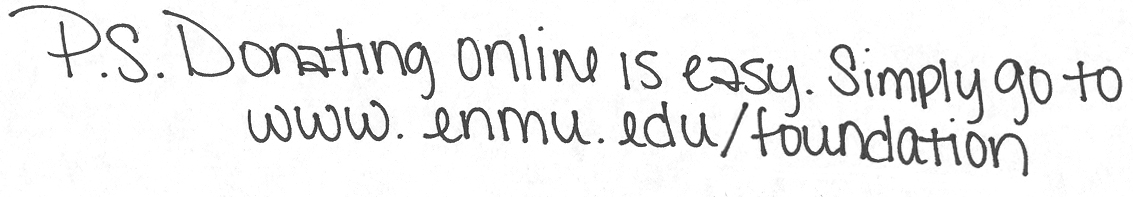 P.S. Donating online is easy. Simply go to
www.enmu.edu/foundation